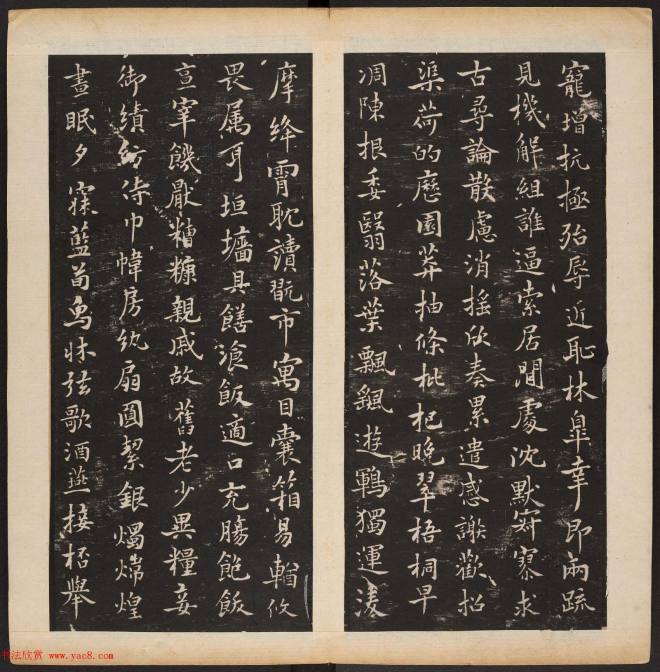 寵增抗極殆辱近恥林皐幸即兩疏
見機解組誰逼索居閒處沈默寂寥求
古尋論散慮消搖欣奏累遣慼謝歡招
渠荷的歷園莽抽條枇杷晚翠梧桐早
凋陳根委翳落葉飄颻遊鵾獨運凌
摩絳霄耽讀翫市寓目囊箱易輶攸
畏属耳垣墻具饍湌飯適口充腸飽飫
亯宰饑厭糟糠親戚故舊老少異糧妾
御績紡侍巾帷房紈扇圓潔銀燭煒煌
晝眠夕寐藍荀烏牀弦歌酒燕接杯舉
书法欣赏 www.yac8.com